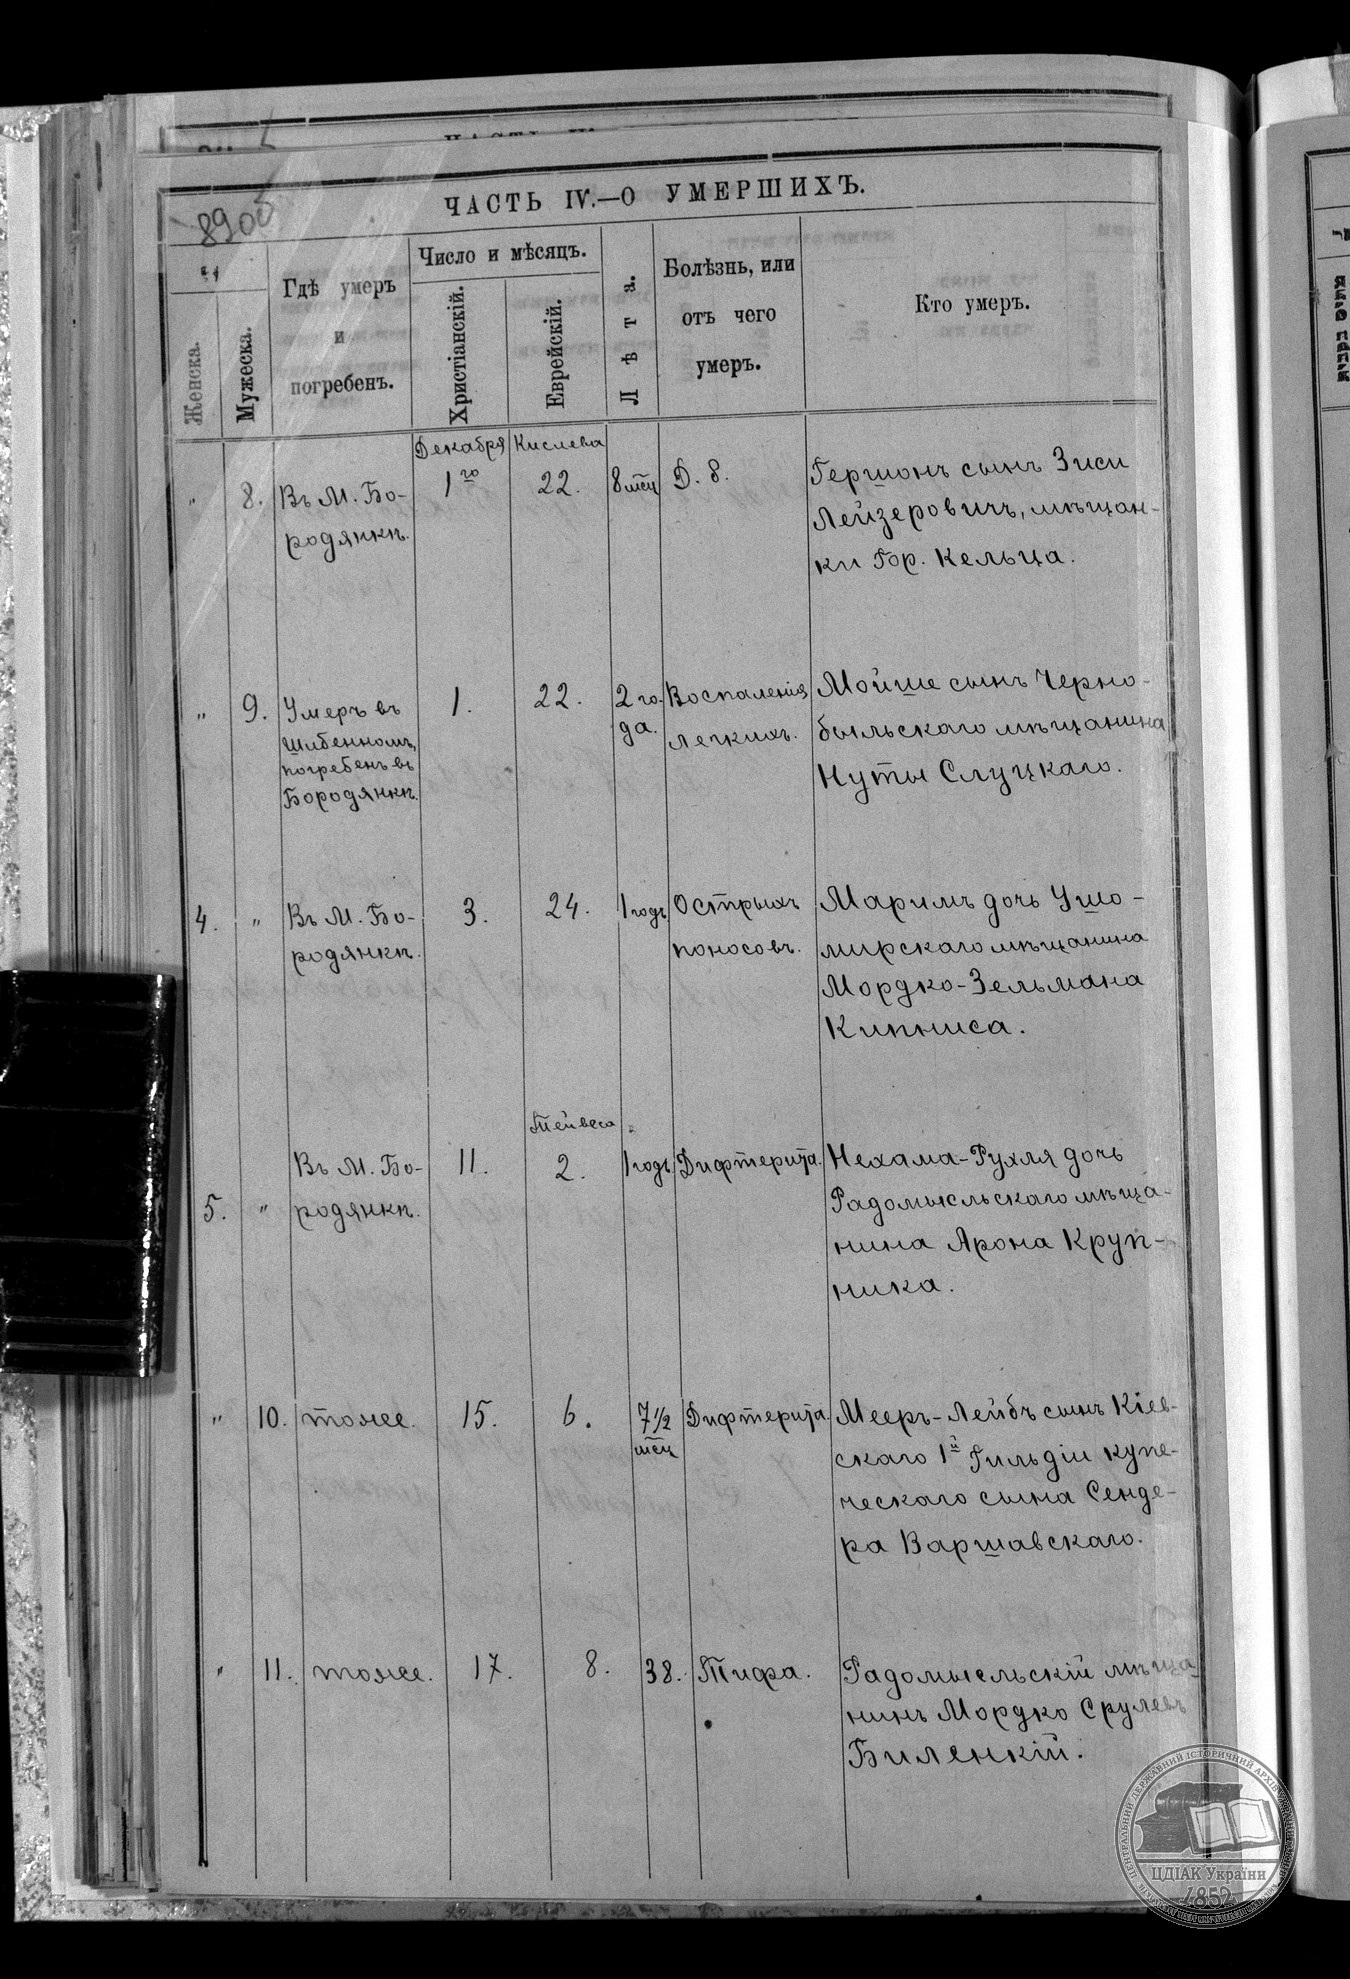 ЧАСТЬ IV.—О УМЕРШИХЪ.
Женска.
Мужеска.
Гдѣ умеръ
и
погребенъ.
Число и мѣсяцъ.
Христіанскій.
Еврейскій.
Лѣта.
Болѣзнь, или
отъ чего
умеръ.
Кто умеръ.
Декабря
Кислева
„ 8. Въ М. Бо-
родянкѣ.
1го
22.
8 мсц
Д. 8.
Гершонъ сынъ Зиси
Лейзеровичъ, мѣщан-
ки Гор. Кельца.
„ 9. Умеръ въ
Шибенномъ,
погребенъ въ
Бородянкѣ.
1.
22.
2 го-
да.
Воспаленія
легкихъ.
Мойше сынъ Черно-
быльскаго мѣщанина
Нуты Слуцкаго.
4. „ Въ М. Бо-
родянкѣ.
3.
24.
1 годъ
Острыхъ
поносовъ.
Маримъ дочь Ушо-
мирскаго мѣщанина
Мордко-Зельмана
Кипниса.
Тейвеса
5. „ Въ М. Бо-
родянкѣ.
11.
2.
1 годъ
Дифтерита.
Нехама-Рухля дочь
Радомысльскаго мѣща-
нина Арона Круп-
ника.
„ 10. тоже.
15.
6.
7 1/2
мсц
Дифтерита.
Мееръ-Лейбъ сынъ Кіев-
скаго 1й Гильдіи купе-
ческаго сына Сенде-
ра Варшавскаго.
„ 11. тоже.
17.
8.
38.
Тифа.
Радомысльскій мѣща
нинъ Мордко Срулевъ
Биленкій.
ЦДІАК України
1852